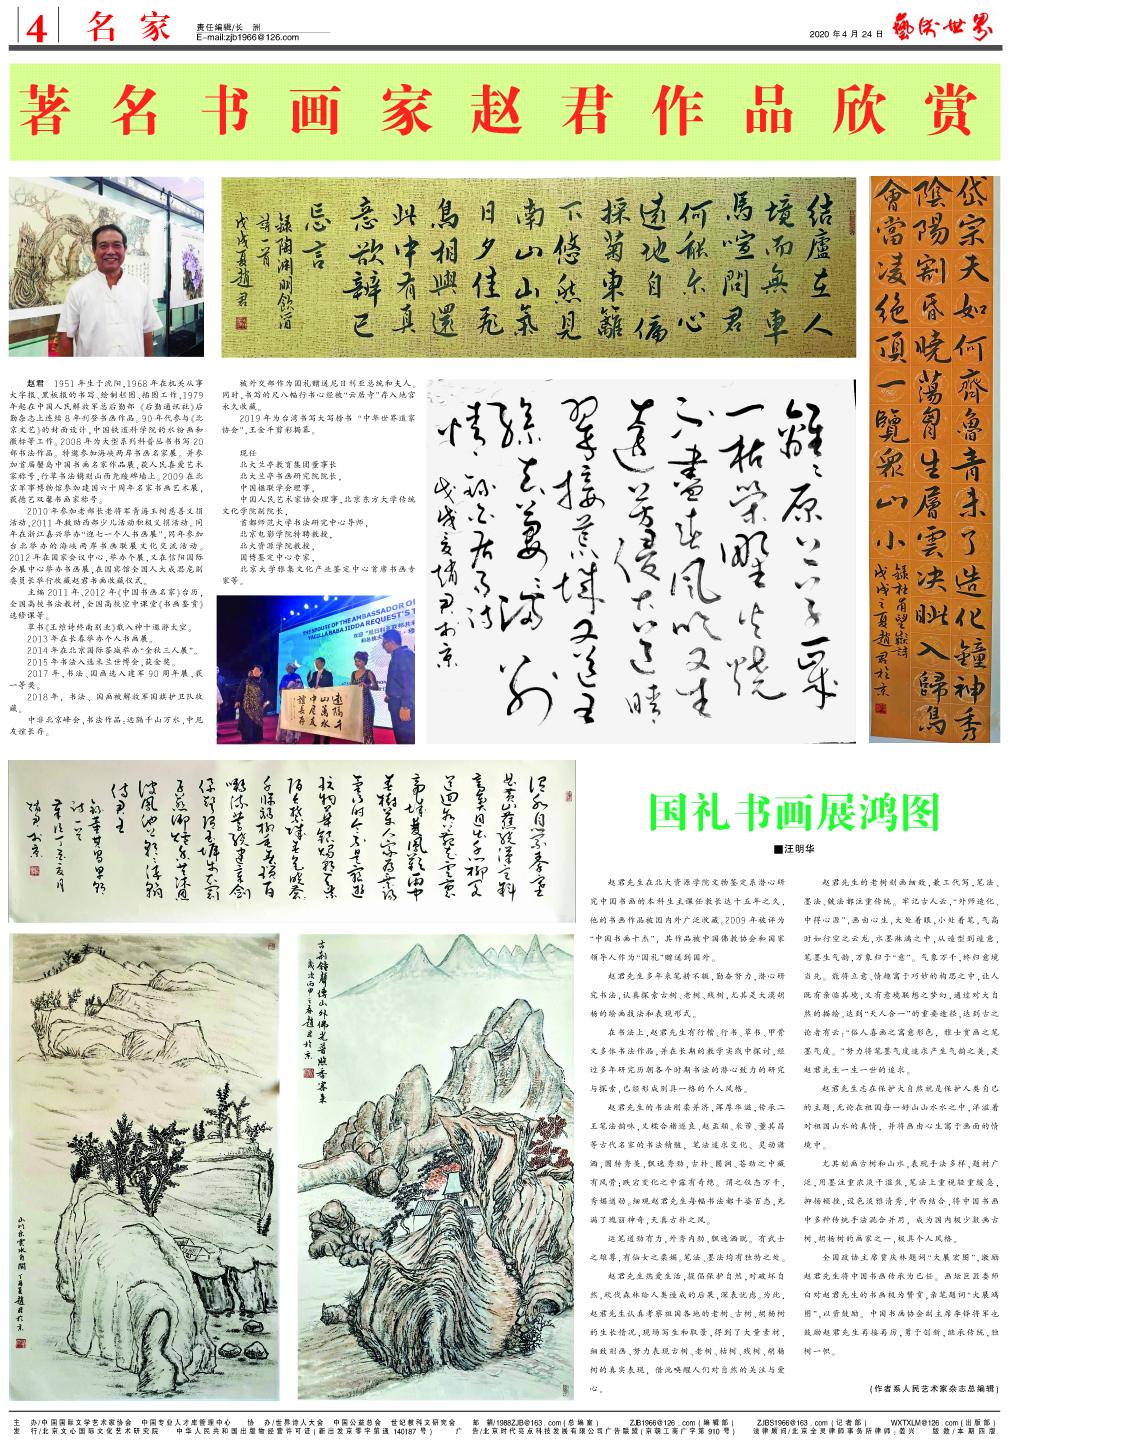 4
名家
责任编辑/长 洲
E-mail:zjb1966@126.com
2020 年 4 月 24 日
藝術世界
著名书画家赵君作品欣赏
结廬在人
境而無車
馬喧問君
何能尔心
遠地自偏
採菊東籬
下悠然見
南山山氣
日夕佳飛
鳥相與還
此中有真
意欲辭已
忘言
錄陶渊明飲酒
詩一首
戊戌夏趙君
岱宗夫如何齊魯青未了造化鐘神秀
陰陽割昏曉蕩胷生層雲决眦入歸鳥
會當凌绝頂一覽衆山小
錄杜甫望嶽詩
戊戌之夏趙君於京
赵君 1951 年生于沈阳,1968 年在机关从事
大字报、黑板报的书写、绘制栏图、插图工作,1979
年起在中国人民解放军总后勤部《后勤通讯社》后
勤杂志上连续 8 年刊登书画作品。90 年代参与《北
京文艺》的封面设计,中国铁道科学院的水粉画和
徽标等工作。2008 年为大型系列科普丛书书写 20
部书法作品。特邀参加海峡两岸书画名家展。并参
加首届蟹岛中国书画名家作品展,获人民喜爱艺术
家称号,行草书法镌刻山西尧陵碑墙上。2009 在北
京军事博物馆参加建国六十周年名家书画艺术展,
获德艺双馨书画家称号。
2010 年参加老部长老将军青海玉树慈善义捐
活动,2011 年救助西部少儿活动积极义捐活动。同
年在浙江嘉兴举办“迎七一个人书画展”,同年参加
台北举办的海峡两岸书画联展文化交流活动。
2012 年在国家会议中心,举办个展,又在信阳国际
会展中心举办书画展,在国宾馆全国人大成思危副
委员长举行收藏赵君书画收藏仪式。
主编 2011 年、2012 年《中国书画名家》台历,
全国高校书法教材,全国高校空中课堂《书画鉴赏》
选修课等。
草书《王维诗终南别业》载入神十遨游太空。
2013 年在长春举办个人书画展。
2014 年在北京国际茶城举办“金秋三人展”。
2015 年书法入选米兰世博会,获金奖。
2017 年,书法、国画选入建军 90 周年展,获
一等奖。
2018 年,书法、国画被解放军国旗护卫队收
藏。
中非北京峰会,书法作品:远隔千山万水,中尼
友谊长存。
被外交部作为国礼赠送尼日利亚总统和夫人。
同时,书写的尺八幅行书心经被“云居寺”存入地宫
永久收藏。
2019 年为台湾书写大写榜书 “中华世界道家
协会”,王金平剪彩揭幕。
现任
北大兰亭教育集团董事长
北大兰亭书画研究院院长,
中国楹联学会理事,
中国人民艺术家协会理事,北京东方大学传统
文化学院副院长,
首都师范大学书法研究中心导师,
北京电影学院特聘教授,
北大资源学院教授,
国博鉴定中心专家,
北京大学雅集文化产业鉴定中心首席书画专
家等。
THE SPOUSE OF THE AMBASSADOR OF
YACELLA BABA JIDDA REQUEST'S T
遠隔千
山萬水
中尼友
誼長存
離離原上草一歲
一枯榮野火燒
不盡春風吹又生
遠芳侵古道晴
翠接荒城又送王
孫去萋萋滿别
情
戊戌之夏趙君於京
国礼书画展鸿图
■汪明华
赵君先生在北大资源学院文物鉴定系潜心研
究中国书画的本科生主课任教长达十五年之久,
他的书画作品被国内外广泛收藏。2009 年被评为
“中国书画十杰”,其作品被中国佛教协会和国家
领导人作为“国礼”赠送到国外。
赵君先生多年来笔耕不辍,勤奋努力,潜心研
究书法,认真探索古树、老树、残树,尤其是大漠胡
杨的绘画技法和表现形式。
在书法上,赵君先生有行楷、行书、草书、甲骨
文多体书法作品,并在长期的教学实践中探讨,经
过多年研究历朝各个时期书法的潜心致力的研究
与探索,已经形成别具一格的个人风格。
赵君先生的书法刚柔并济,浑厚华滋,传承二
王笔法韵味,又糅合褚遂良、赵孟頫、米芾、董其昌
等古代名家的书法精髓,笔法追求变化、灵动潇
洒,圆转秀美,飘逸秀劲,古朴、圆润、苍劲之中藏
有风骨;跌宕变化之中露有奇绝。谓之仪态万千,
秀媚遒劲。细观赵君先生每幅书法都千姿百态,充
满了瑰丽神奇,天真古朴之风。
运笔遒劲有力,外秀内劲,飘逸洒脱。有武士
之雄尊,有仙女之柔媚。笔法、墨法均有独特之处。
赵君先生热爱生活,提倡保护自然,对破坏自
然,砍伐森林给人类造成的后果,深表忧虑。为此,
赵君先生认真考察祖国各地的老树、古树、胡杨树
的生长情况,现场写生和取景,得到了大量素材,
细致刻画、努力表现古树、老树、枯树、残树、胡杨
树的真实表现,借此唤醒人们对自然的关注与爱
心。
赵君先生的老树刻画细致,兼工代写、笔法、
墨法、皴法都注重传统。牢记古人云,“外师造化、
中得心源”,画由心生,大处着眼,小处着笔,气高
时如行空之云龙,水墨淋漓之中,从造型到造意,
笔墨生气韵,万象归于“意”。气象万千,终归意境
当先。能将立意、情趣寓于巧妙的构思之中,让人
既有亲临其境,又有意境联想之梦幻,通过对大自
然的描绘,达到“天人合一”的重要途径,达到古之
论者有云:“俗人喜画之寓意形色,雅士赏画之笔
墨气度。”努力将笔墨气度追求产生气韵之美,是
赵君先生一生一世的追求。
赵君先生志在保护大自然就是保护人类自己
的主题,无论在祖国每一好山山水水之中,洋溢着
对祖国山水的真情,并将画由心生寓于画面的情
境中。
尤其刻画古树和山水,表现手法多样,题材广
泛,用墨注重浓淡干湿焦,笔法上重视轻重缓急,
抑扬顿挫,设色淡雅清秀,中西结合,将中国书画
中多种传统手法混合并用,成为国内极少数画古
树、胡杨树的画家之一,极具个人风格。
全国政协主席贾庆林题词“大展宏图”,激励
赵君先生将中国书画传承为己任。画坛巨匠娄师
白对赵君先生的书画极为赞赏,亲笔题词“大展鸿
图”,以资鼓励。中国书画协会副主席李铎将军也
鼓励赵君先生再接再厉,勇于创新,继承传统,独
树一帜。
(作者系人民艺术家杂志总编辑)
主 办/中国国际文学艺术家协会 中国专业人才库管理中心 协 办/世界诗人大会 中国公益总会 世纪教科文研究会 邮 箱/1988ZJB@163.com(总编室) ZJB1966@126.com(编辑部) ZJBS1966@163.com(记者部) WXTXLM@126.com(出版部)
发 行/北京文心国际文化艺术研究院 中华人民共和国出版物经营许可证(新出发京零字第通 140187 号) 广 告/北京时代亮点科技发展有限公司广告联盟(京朝工商广字第 910 号) 法律顾问/北京金灵律师事务所律师:姜兴 版数/本期四版